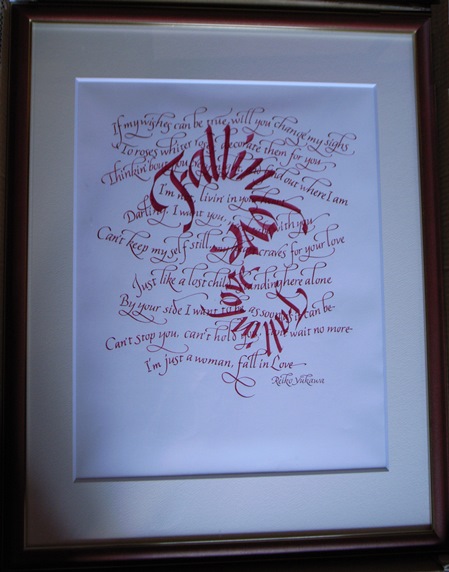 If my wishes can be true, will you change my sighs
To roses whiter roses decorate them for you
Thinkin' bout you find out where I am
I'm not livin' in your heart
Darling, I want you, with you
Can't keep my self still my heart craves for your love
Just like a lost child standing here alone
By your side I want to be as soon as it can be-
Can't stop you, can't hold you, can't wait no more-
I'm just a woman, fall in Love
Reiko Yukawa
Fallin' love